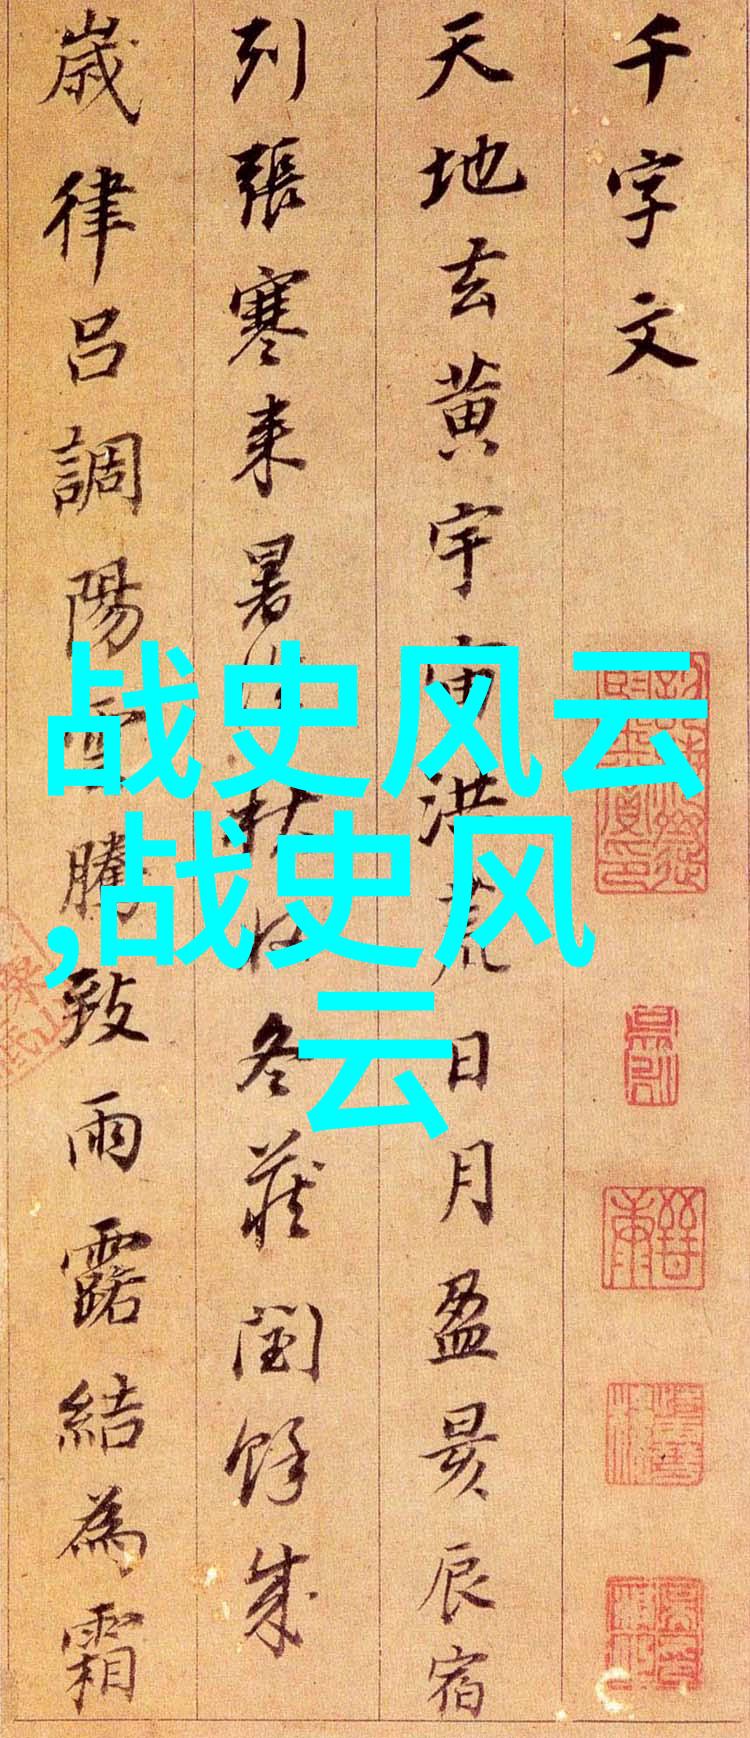 千字文
天地玄黄宇宙洪荒日月盈昃辰宿
列張寒来暑秋收冬藏閏餘成
歲律吕調陽雲騰致雨露結為霜
战史风云
,战史风
云